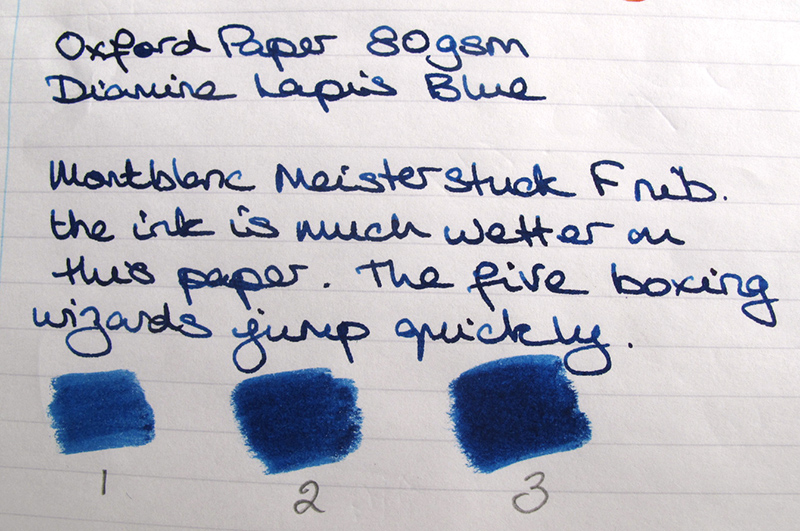 Oxford Paper 80gsm
Diamine Lapis Blue
Montblanc Meisterstuck F nib.
the ink is much wetter on
this paper. The five boxing
wizards jump quickly.
1 2 3